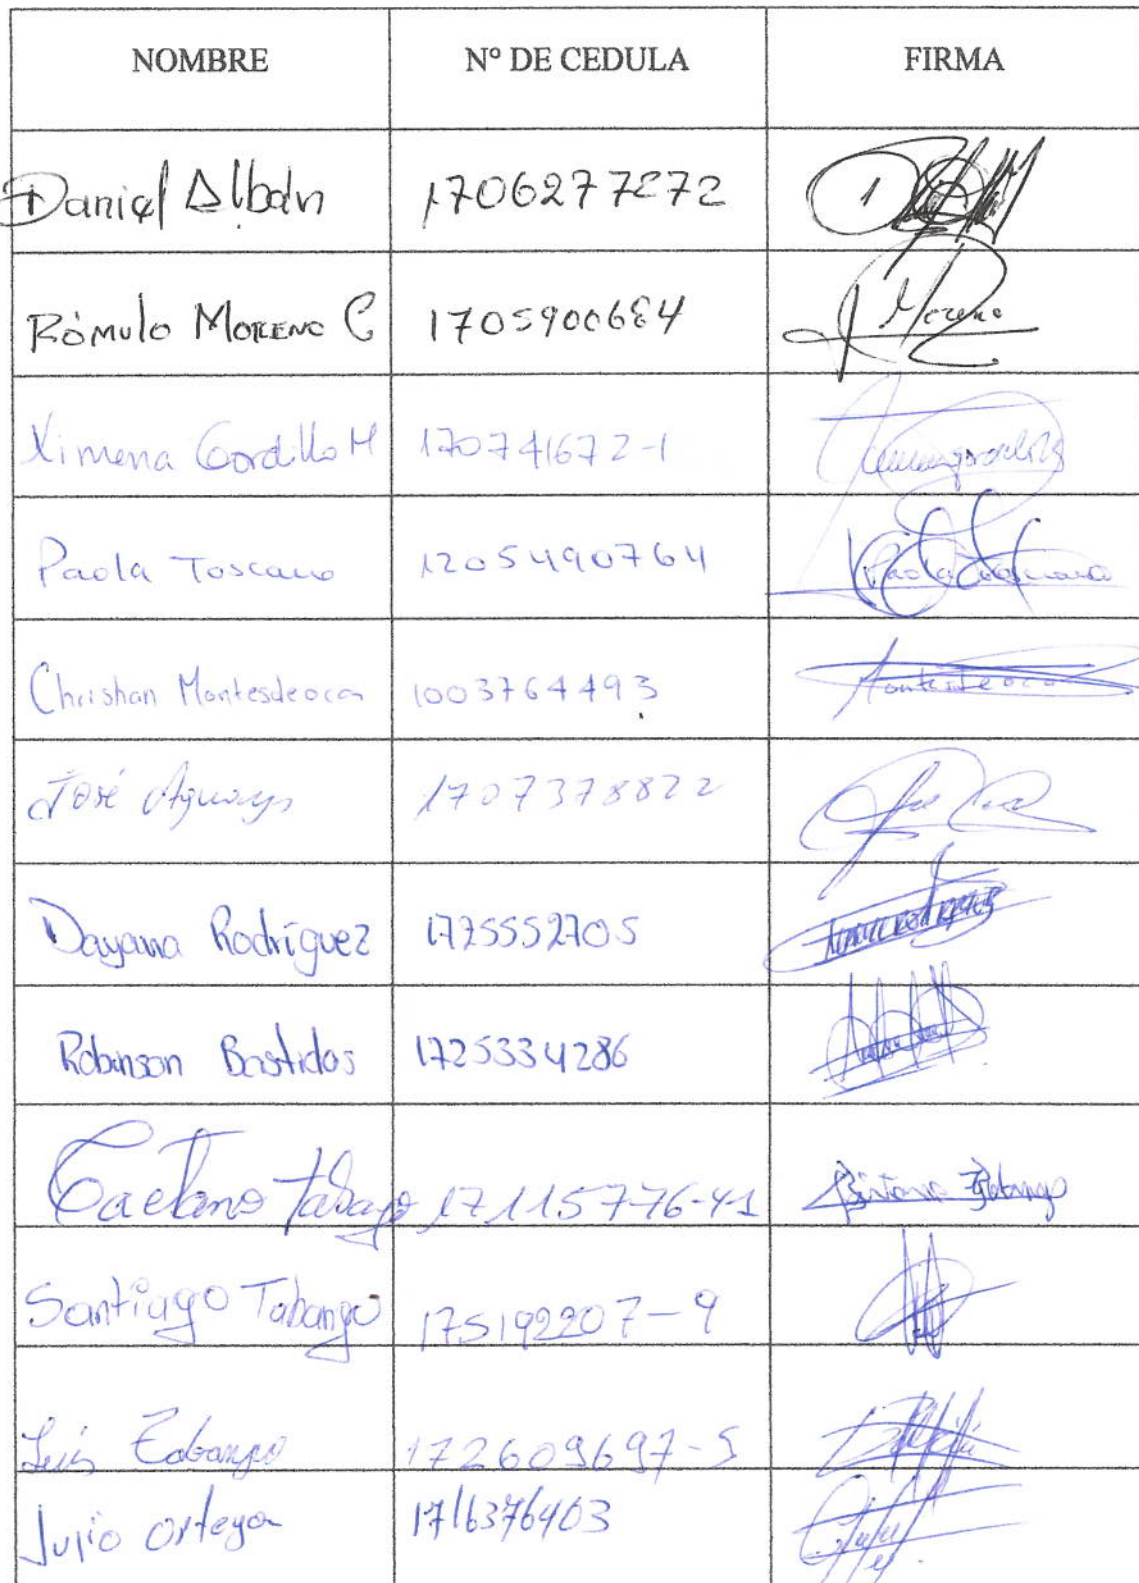 NOMBRE Nº DE CEDULA FIRMA
Daniel Albán 1706277272
Rómulo Moreno C 1705900684 Moreno
Ximena Gordillo M 170741672-1
Paola Toscano 1205490764 Paola Toscano
Christian Montesdeoca 1003764493 Montesdeoca
José 1707378822
Dayana Rodríguez 1725552705
Robinson Bastidas 1725334286
Caetano Tabango 17115776-41
Santiago Tabango 175192207-9
Luis Tabango 172609697-5
Julio Ortega 1716376403